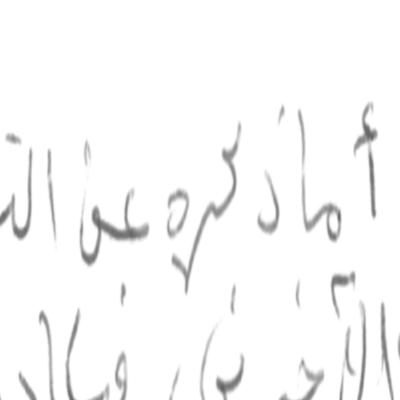 أما ذكره عن الت
الآخرين، فكاد